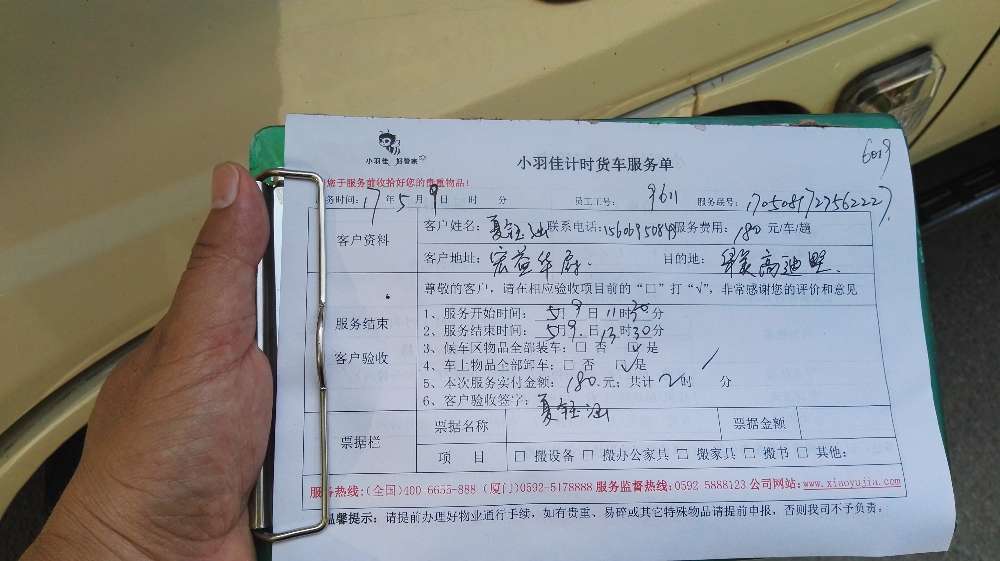 小羽佳 好管家
小羽佳计时货车服务单
6019
您于服务前收拾好您的贵重物品!
务时间: 17 年 5 月 9 日 时 分 员工工号: 9611 服务联号:
客户资料 客户姓名: 夏钰涵 联系电话: 服务费用: 180 元/车/趟
客户地址: 宏益华府. 目的地: 高迪墅.
尊敬的客户,请在相应验收项目前的“□”打“√”,非常感谢您的评价和意见
服务结束 客户验收
1、服务开始时间: 5月 9 日 11 时 30 分
2、服务结束时间: 5月 9. 日 13 时 30 分
3、候车区物品全部装车: □ 否 ☑ 是
4、车上物品全部卸车: □ 否 ☑ 是
5、本次服务实付金额: 180. 元; 共计 2 时 / 分
6、客户验收签字: 夏钰涵
票据栏 票据名称 票据金额
项 目 □ 搬设备 □ 搬办公家具 □ 搬家具 □ 搬书 □ 其他:
服务热线:(全国)400 6655-888 (厦门)0592-5178888 服务监督热线:0592 5888123 公司网站:www.xiaoyujia.com
温馨提示: 请提前办理好物业通行手续, 如有贵重、易碎或其它特殊物品请提前申报, 否则我司不予负责,